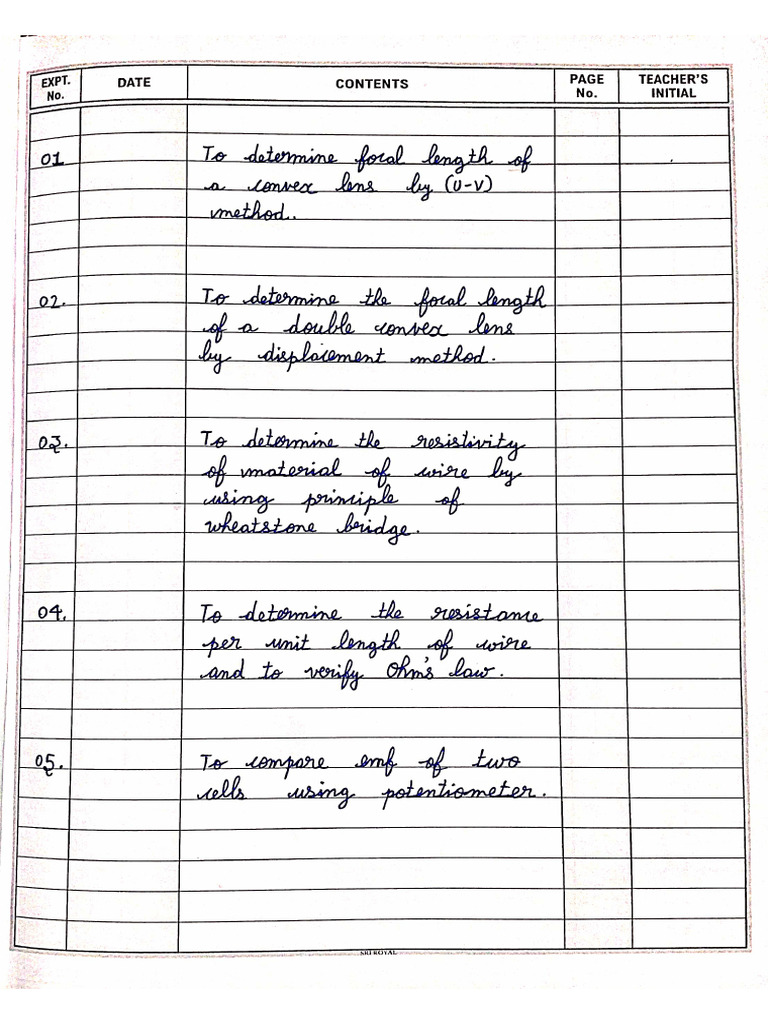 EXPT. No. DATE CONTENTS PAGE No. TEACHER'S INITIAL
01 To determine focal length of
a convex lens by (U-V)
method.
02. To determine the focal length
of a double convex lens
by displacement method.
03. To determine the resistivity
of material of wire by
using principle of
wheatstone bridge.
04. To determine the resistance
per unit length of wire
and to verify Ohm's law.
05. To compare emf of two
cells using potentiometer.
SRI ROYAL